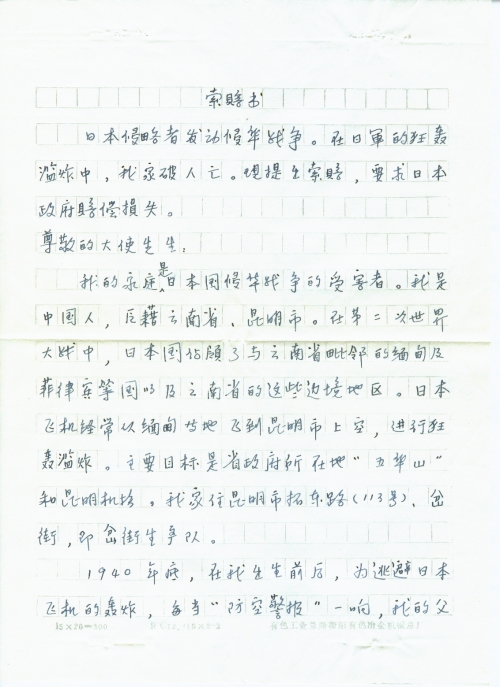 索賠书
日本侵略者发动侵华战争。在日軍的狂轰
滥炸中，我家破人亡。現提出索賠，要求日本
政府賠偿損失。
尊敬的大使先生：
我的家庭是日本国侵华战争的受害者。我是
中国人，巨籍云南省、昆明市。在第二次世界
大战中，日本国佔領了与云南省毗邻的缅甸及
菲律宾等国以及云南省的这些边境地区。日本
飞机经常从缅甸等地飞到昆明市上空，进行狂
轰滥炸。主要目标是省政府所在地“五华山”
和昆明机场。我家住昆明市拓东路（113号）、岔
街，即岔街生争队。
1940年底，在我出生前后，为逃避日本
飞机的轰炸，每当“防空警报”一响，我的父
15×20=300